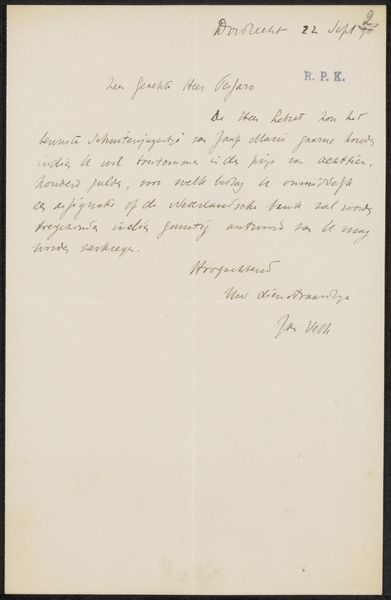 Dordrecht 22 Sept 90
2
R. P. K.
Zeer Geachte Heer Pesjaro
De Heer Hidret zou het
bewuste Schuitenjagertje van Jaap Maris gaarne houden
indien U wil toestemmen in den prijs van achttien-
honderd gulden, voor welk bedrag U onmiddellijk
een assignatie op de Nederlandsche bank zal worden
toegezonden indien gunstig antwoord van U mag
worden verkregen.
Hoogachtend
Uw dienstwaardige
Jan Veth